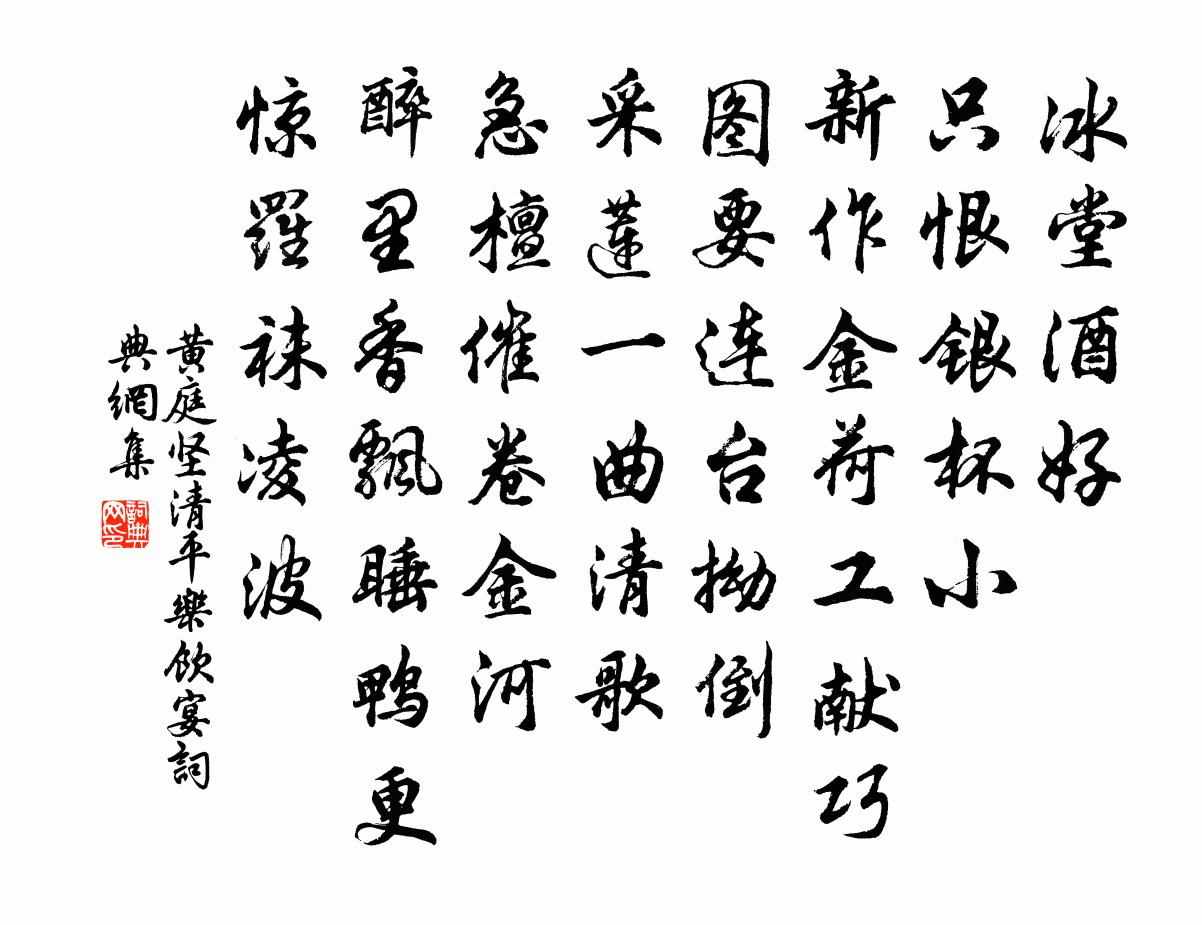 冰堂酒好
只恨银杯小
新作金荷工献巧
图要连台拗倒
采莲一曲清歌
急檀催卷金河
醉里香飘睡鸭更
惊羅袜凌波
黄庭坚清平樂飲宴詞
典網集
詞典网印